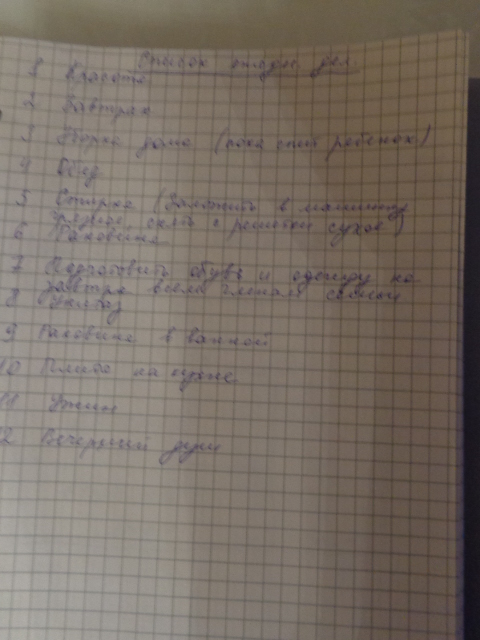 Список ежедн. дел
1 Красота
2 Завтрак
3 Уборка дома (пока спит ребенок)
4 Обед
5 Стирка (Заложить в машинку
грязное, снять с решетки сухое)
6 Раковина
7 Подготовить обувь и одежду на
завтра всем членам семьи
8 Унитаз
9 Раковина в ванной
10 Плита на кухне
11 Ужин
12 Вечерний душ